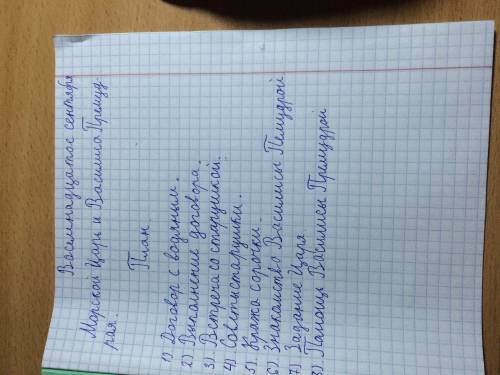 Васемнадцатое сентября
Морской Царь и Василиса Премуд-
рая.
План
1) Договор с водяным.
2) Выкалнение договора.
3) Встреча со старушкой.
4) Советы старушки.
5) Кража сорочки.
6) Знакомство Василисы Пемудрой
7) Задание Царя
8) Памощь Василисы Премудрой